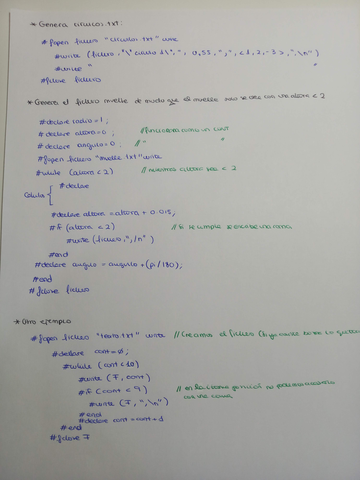 * Genera circulos.txt:
#fopen fichero "circulos.txt" write
#write (fichero, "\" circulo 1\",", 0,55, ",", <1,2,-3>, "\n")
#write " "
#fclose fichero
* Genera el fichero muelle de modo que el muelle solo se vea con una altura < 2
#declare radio = 1;
#declare altura = 0; //funcionara como un cont
#declare angulo = 0; // " "
#fopen fichero "muelle.txt" write
#while (altura < 2) // mientras altura sea < 2
#declare
Calcula {
#declare altura = altura + 0.015;
#if (altura < 2) // Si se cumple se escribe una coma
#write (fichero, ", /n")
#end
#declare angulo = angulo + (pi/180);
#end
#fclose fichero
* Otro ejemplo
#fopen fichero "texto.txt" write // Creamos el fichero
#declare cont = 0;
#while (cont < 10)
#write (F, cont)
#if (cont < 9) // en la ultima no
#write (F, ", \n")
#end
#declare cont = cont + 1
#end
#fclose F